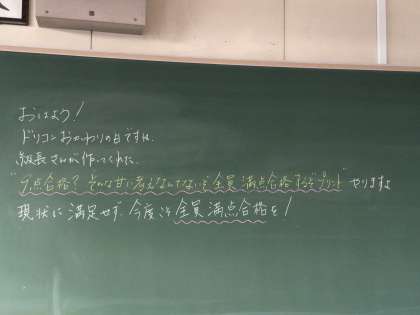 おはよう!
ドリコンおかわりの日ですね。
級長さんが作ってくれた、
点合格? そんな甘い考えなんてないぞ 全員満点合格するぞプリント" やりますよ
現状に満足せず、今度こそ全員満点合格を!